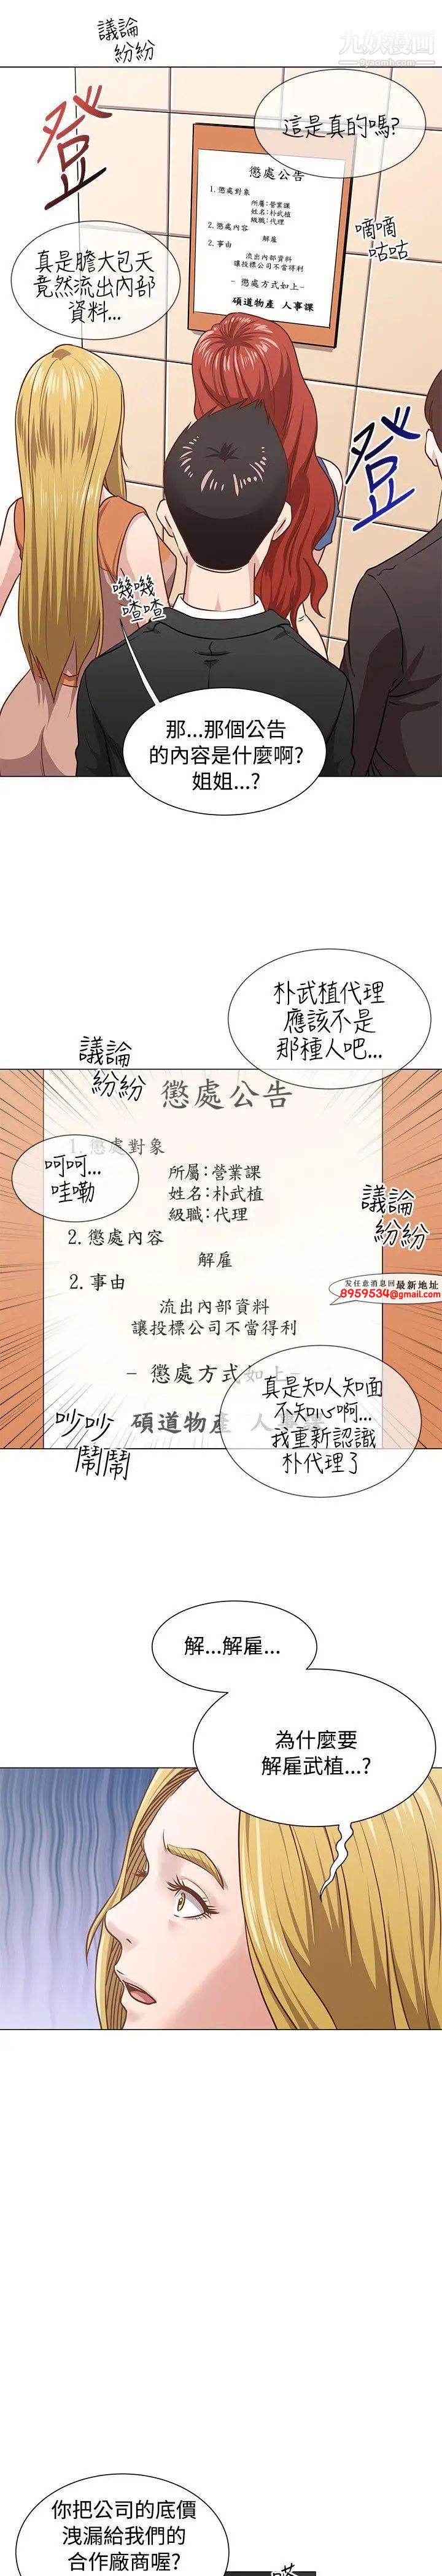 議論
紛紛
九妖漫画
9yaomm.com
登
這是真的嗎?
懲處公告
1.懲處對象
所屬:營業課
姓名:朴武植
級職:代理
2.懲處內容
解雇
2.事由
流出內部資料
讓投標公司不當得利
- 懲處方式如上-
碩道物產 人事課
嘀嘀
咕咕
真是膽大包天
竟然流出內部
資料...
登
嘰嘰
喳喳
那...那個公告
的內容是什麼啊?
姐姐...?
朴武植代理
應該不是
那種人吧...
議論
紛紛
懲處公告
1.懲處對象
呵呵...
哇嘞
所屬:營業課
姓名:朴武植
級職:代理
議論
紛紛
2.懲處內容
解雇
发任意消息回最新地址
8959534@gmail.com
2.事由
流出內部資料
讓投標公司不當得利
- 懲處方式如上-
真是知人知面
不知心啊...
我重新認識
朴代理了
吵吵
鬧鬧
碩道物產 人事課
解...解雇...
為什麼要
解雇武植...?
你把公司的底價
洩漏給我們的
合作廠商喔?